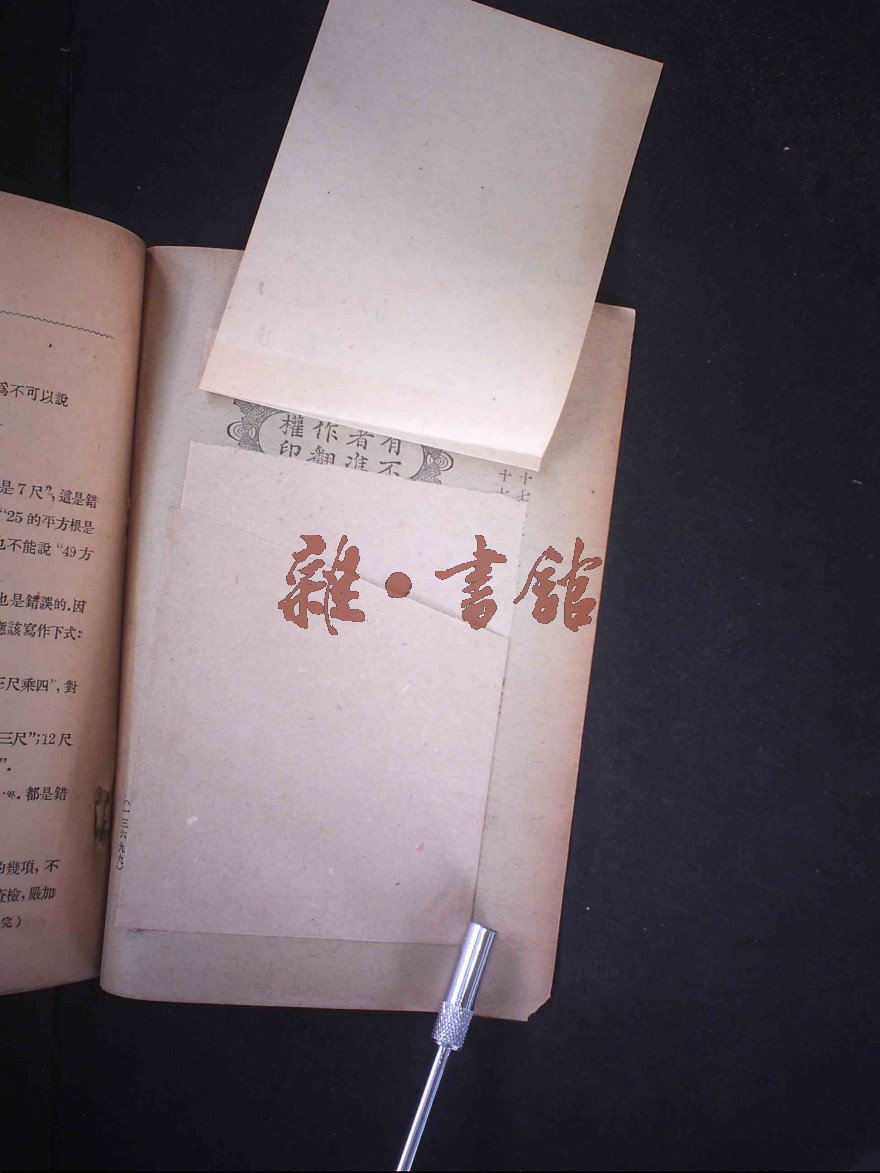 爲不可以說
是7尺”, 這是錯
“25的平方根是
也不能說“49方
也是錯誤的.因
應該寫作下式:
三尺乘四”, 對
三尺”;12尺
”.
都是錯
的幾項, 不
查檢, 嚴加
完)
有不
者准
作翻
權印
十七
十七
(一三六九九)
雜•書館